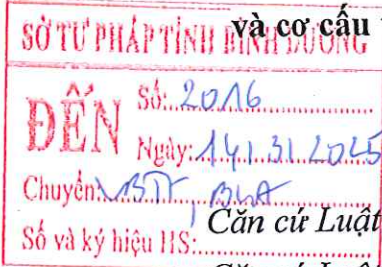 và cơ cấu
SỞ TƯ PHÁP TỈNH BÌNH DƯƠNG
ĐẾN
Số:...2016...
Ngày:...14/3/2025
Chuyển:
Căn cứ Luật
Số và ký hiệu HS:...
Căn cứ Luật